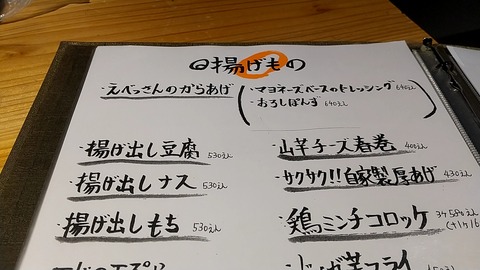 揚げもの
・えべっさんのからあげ
・マヨネーズベースのドレッシング 640えん
・おろしぽんず 640えん
・揚げ出し豆腐 530えん
・揚げ出しナス 530えん
・揚げ出しもち 530えん
・山芋チーズ春巻 400えん
・サクサク!!自家製厚あげ 430えん
・鶏ミンチコロッケ